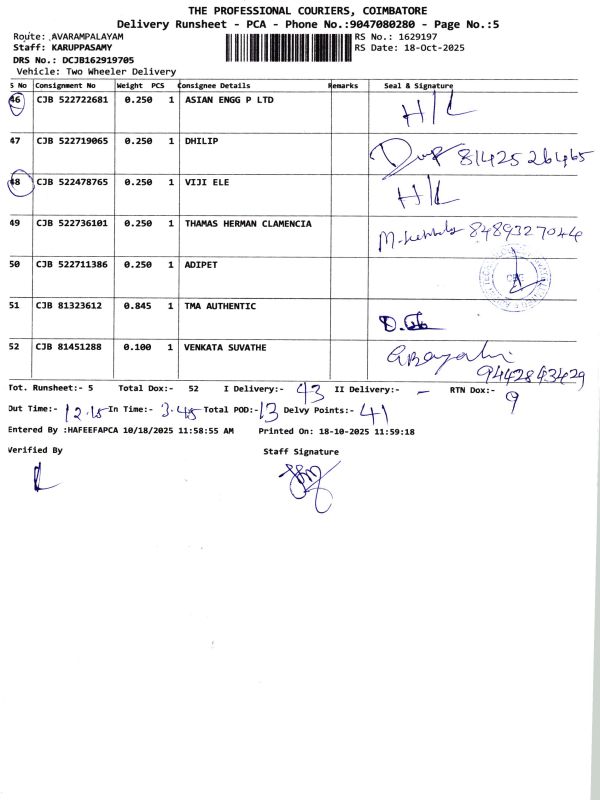 THE PROFESSIONAL COURIERS, COIMBATORE
Delivery Runsheet - PCA - Phone No.:9047080280 - Page No.:5
Route: AVARAMPALAYAM RS No.: 1629197
Staff: KARUPPASAMY RS Date: 18-Oct-2025
DRS No.: DCJB162919705
Vehicle: Two Wheeler Delivery
S No Consignment No Weight PCS Consignee Details Remarks Seal & Signature
46 CJB 522722681 0.250 1 ASIAN ENGG P LTD H/L
47 CJB 522719065 0.250 1 DHILIP
48 CJB 522478765 0.250 1 VIJI ELE H/L
49 CJB 522736101 0.250 1 THAMAS HERMAN CLAMENCIA 8489327044
50 CJB 522711386 0.250 1 ADIPET
51 CJB 81323612 0.845 1 TMA AUTHENTIC
52 CJB 81451288 0.100 1 VENKATA SUVATHE
9442843429
Tot. Runsheet:- 5 Total Dox:- 52 I Delivery:- 43 II Delivery:- - RTN Dox:- 9
Out Time:- 12.15 In Time:- 3.45 Total POD:- 13 Delvy Points:- 41
Entered By :HAFEEFAPCA 10/18/2025 11:58:55 AM Printed On: 18-10-2025 11:59:18
Verified By Staff Signature